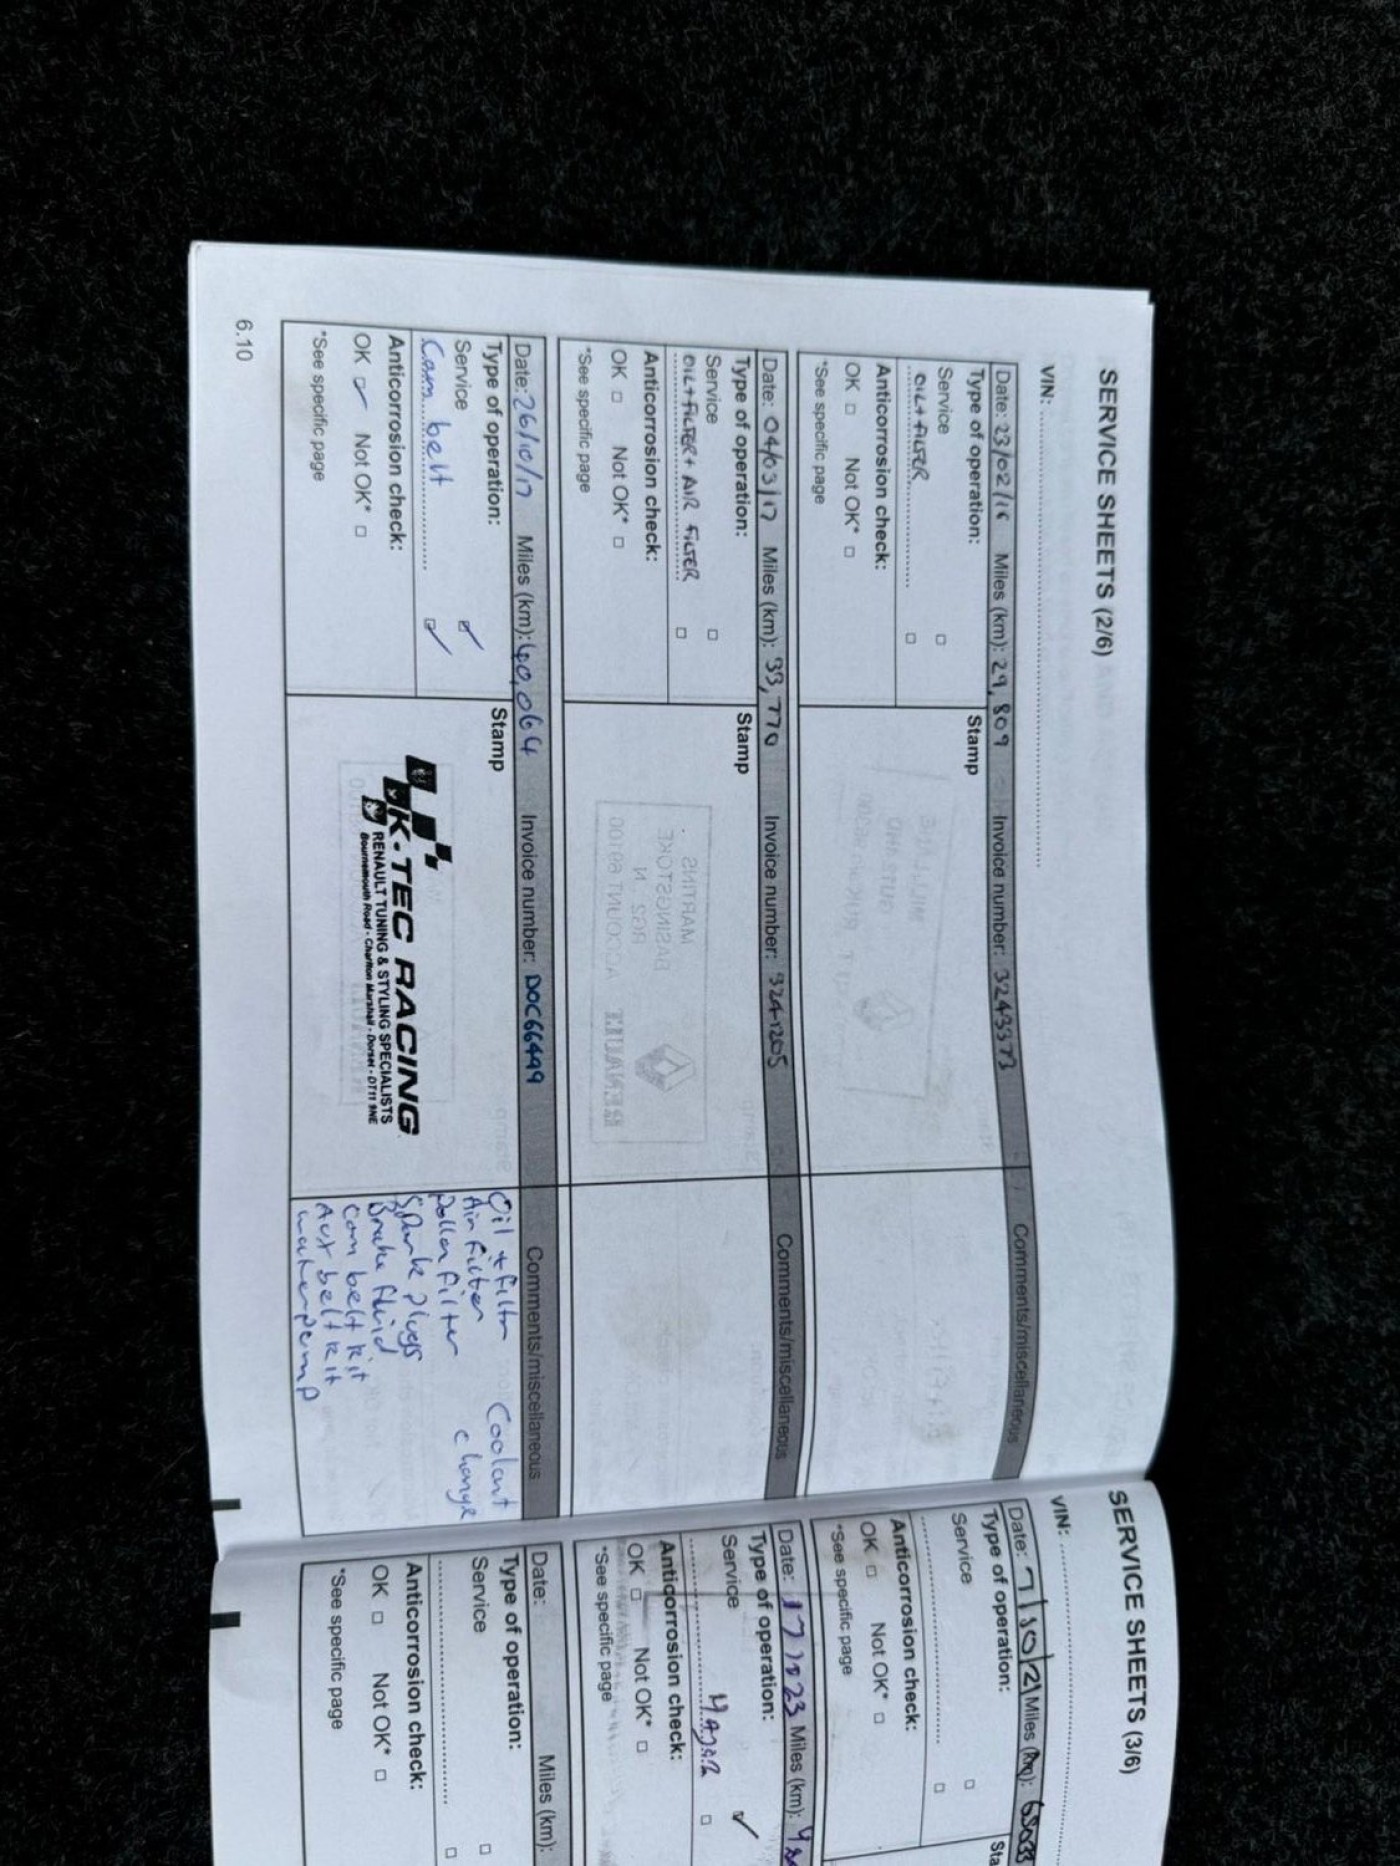 SERVICE SHEETS (2/6)
VIN:
Date: 23/02/16 Miles (km): 29,809 Invoice number: 3243373 Comments/miscellaneous
Type of operation: Stamp
Service
OIL + FILTER
Anticorrosion check:
OK Not OK*
*See specific page
Date: 04/03/17 Miles (km): 33,770 Invoice number: 3241205 Comments/miscellaneous
Type of operation: Stamp
Service
OIL + FILTER + AIR FILTER
Anticorrosion check:
OK Not OK*
*See specific page
Date: 26/10/17 Miles (km): 40,064 Invoice number: DOC66449 Comments/miscellaneous
Type of operation: Stamp
Service
Cam belt
Anticorrosion check:
OK Not OK*
*See specific page
K-TEC RACING
RENAULT TUNING & STYLING SPECIALISTS
Bournemouth Road - Charlton Marshall - Dorset - DT11 9NE
Oil + filtr Coolant
Air filter change
Pollen filter
Spark plugs
Brake fluid
Cam belt kit
Aux belt kit
waterpump
6.10
SERVICE SHEETS (3/6)
VIN:
Date: Miles (km):
Type of operation: Sta
Service
Anticorrosion check:
OK Not OK*
*See specific page
Date: Miles (km):
Type of operation:
Service
Major
Anticorrosion check:
OK Not OK*
*See specific page
Date: Miles (km):
Type of operation:
Service
Anticorrosion check:
OK Not OK*
*See specific page